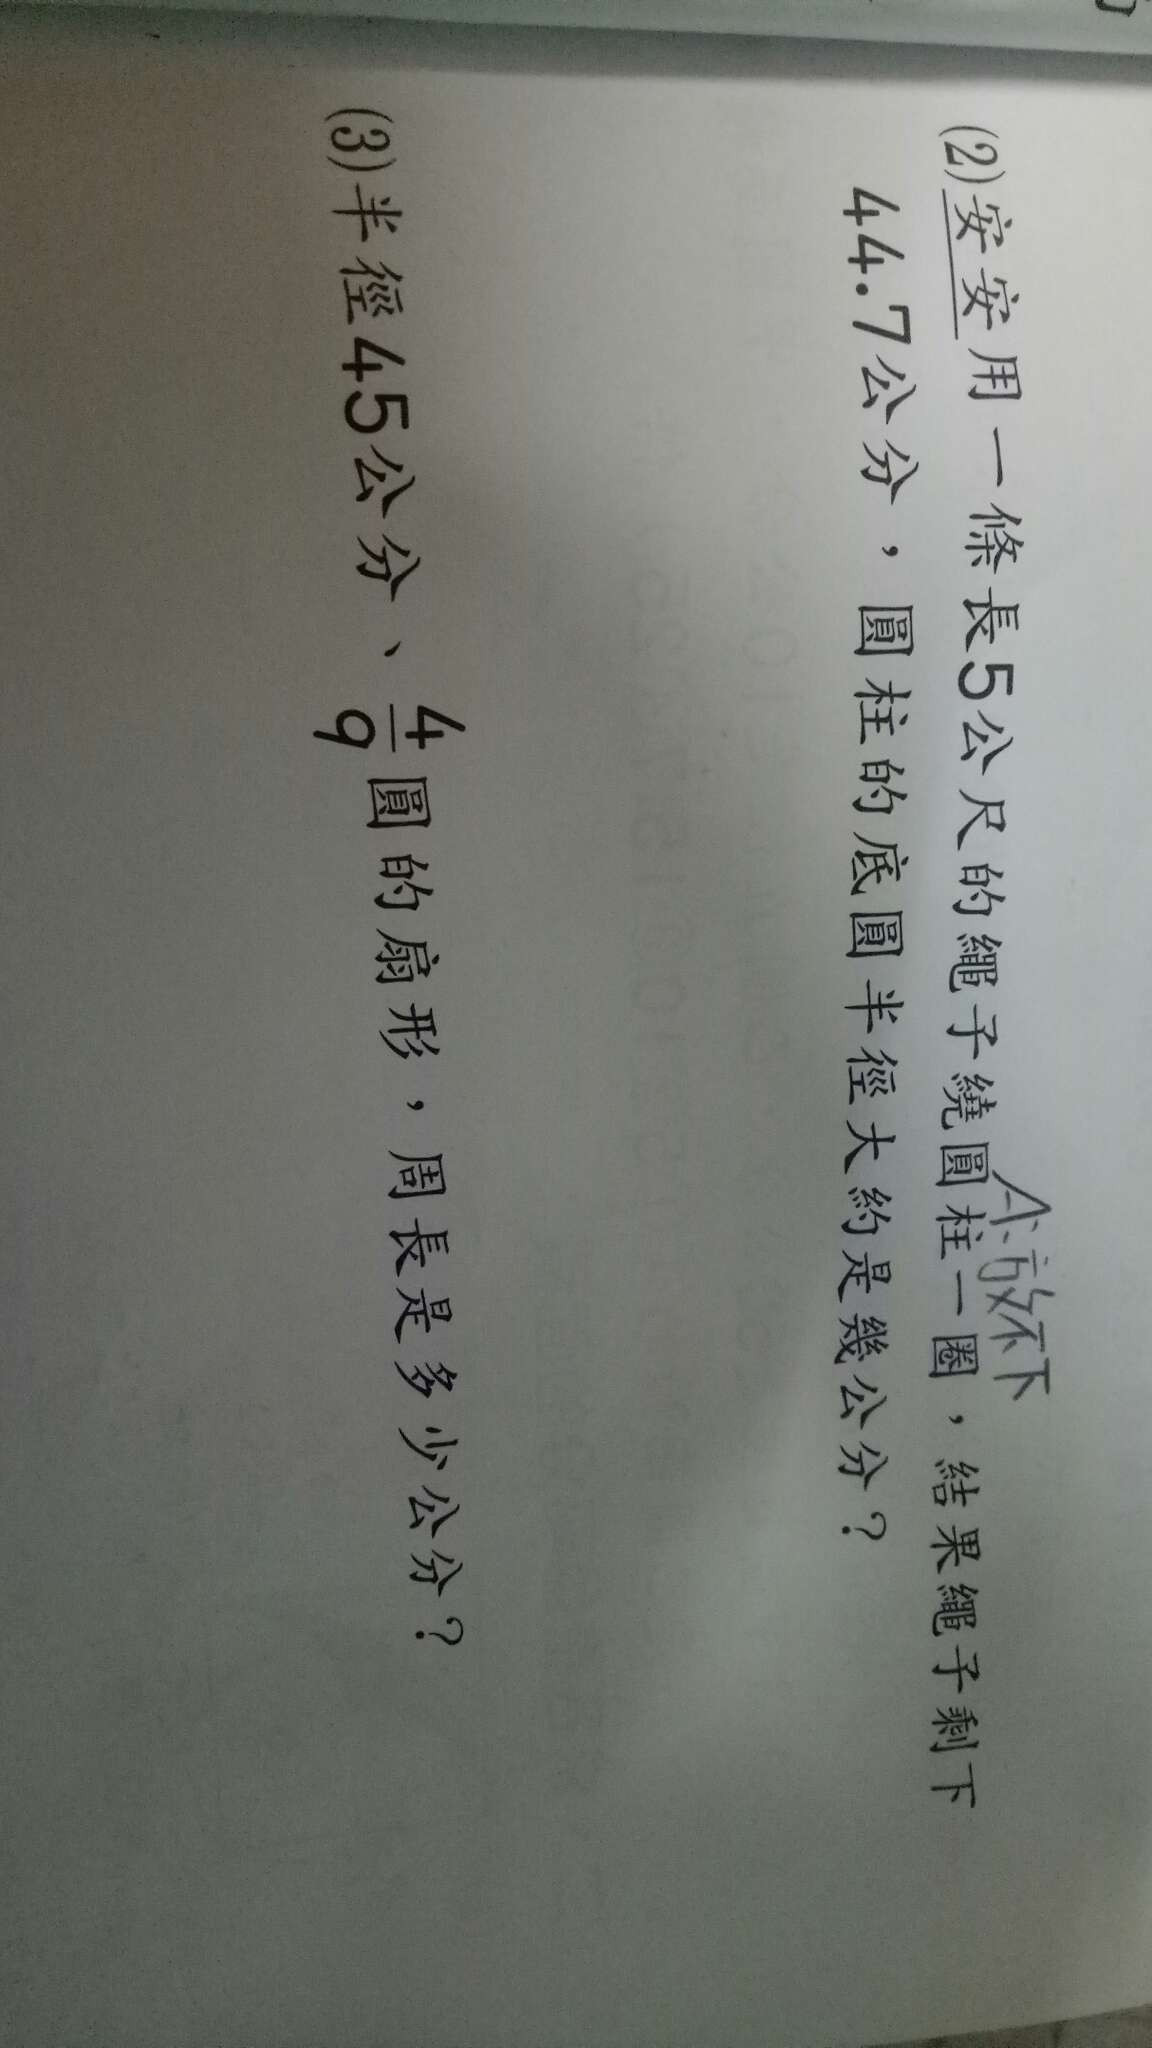 (2)安安用一條長5公尺的繩子繞圓柱一圈，結果繩子剩下
44.7公分，圓柱的底圓半徑大約是幾公分？
A:放不下
(3)半徑45公分、4/9圓的扇形，周長是多少公分？